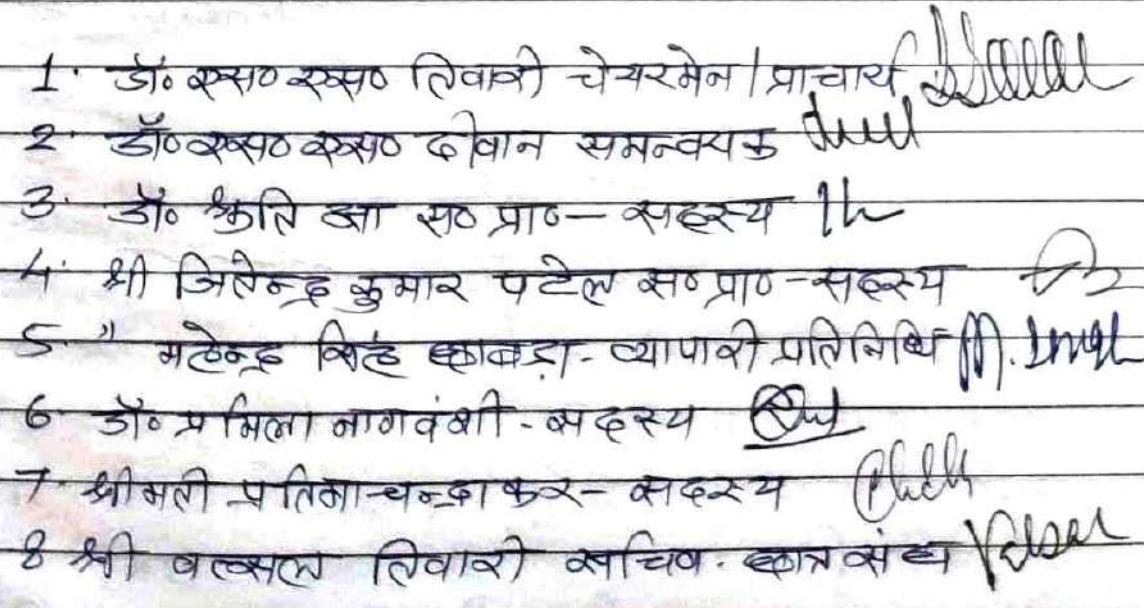 1. डॉ० एस० एस० तिवारी चेयरमेन / प्राचार्य
2. डॉ० एस० एस० दीवान समन्वयक
3. डॉ० श्रुति झा स० प्रा० - सदस्य
4. श्री जितेन्द्र कुमार पटेल स० प्रा० - सदस्य
5. " महेन्द्र सिंह छाबड़ा - व्यापारी प्रतिनिधि
6. डॉ० प्रमिला नागवंशी - सदस्य
7. श्रीमती प्रतिमा चन्द्राकर - सदस्य
8 श्री वत्सल तिवारी सचिव. छात्र संघ